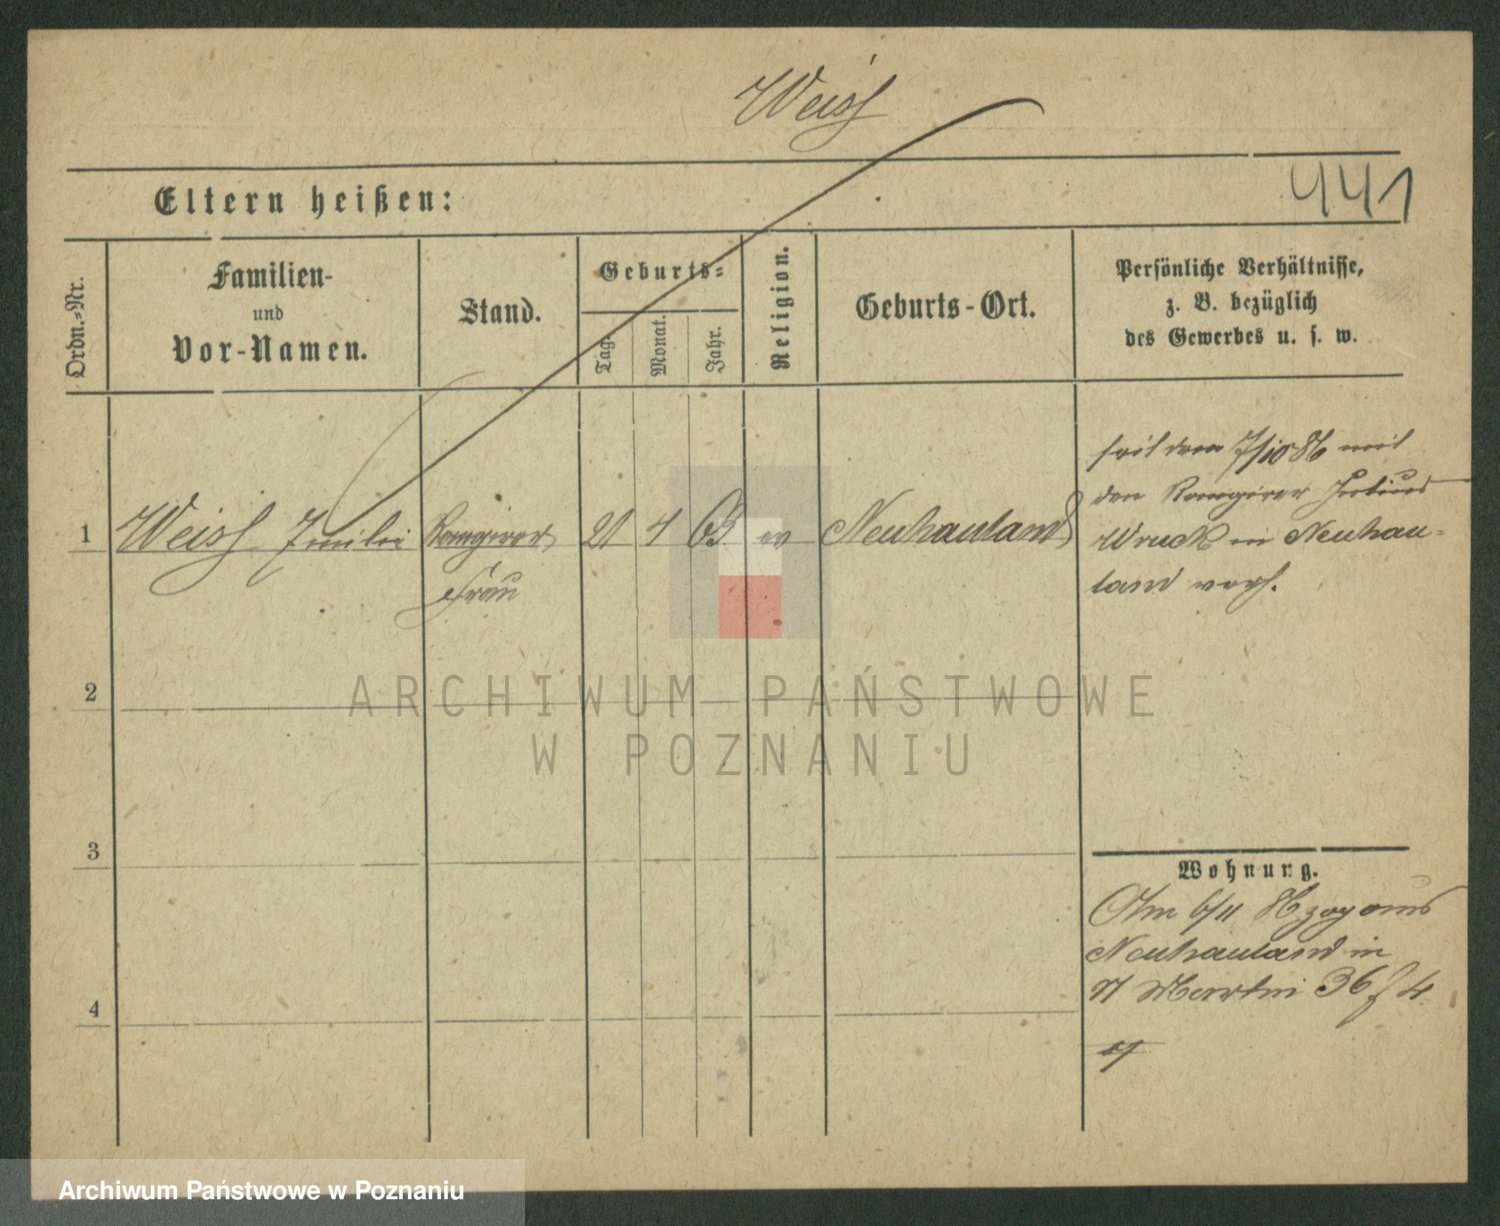 Weiß
441
Eltern heißen:
Ordn.-Nr.
Familien-
und
Vor-Namen.
Stand.
Geburts-
Tag.
Monat.
Jahr.
Religion.
Geburts-Ort.
Persönliche Verhältnisse,
z. B. bezüglich
des Gewerbes u. s. w.
1
Weiß
21 4 63 ev Neuhauland
Frau
seit dem 7/10 86 mit
den Julius
Wruck in Neuhau-
land verh.
2
ARCHIWUM PAŃSTWOWE
W POZNANIU
3
Wohnung.
Am 6/11 86 zog aus
Neuhauland in
St Martin 36 4
4
Archiwum Państwowe w Poznaniu